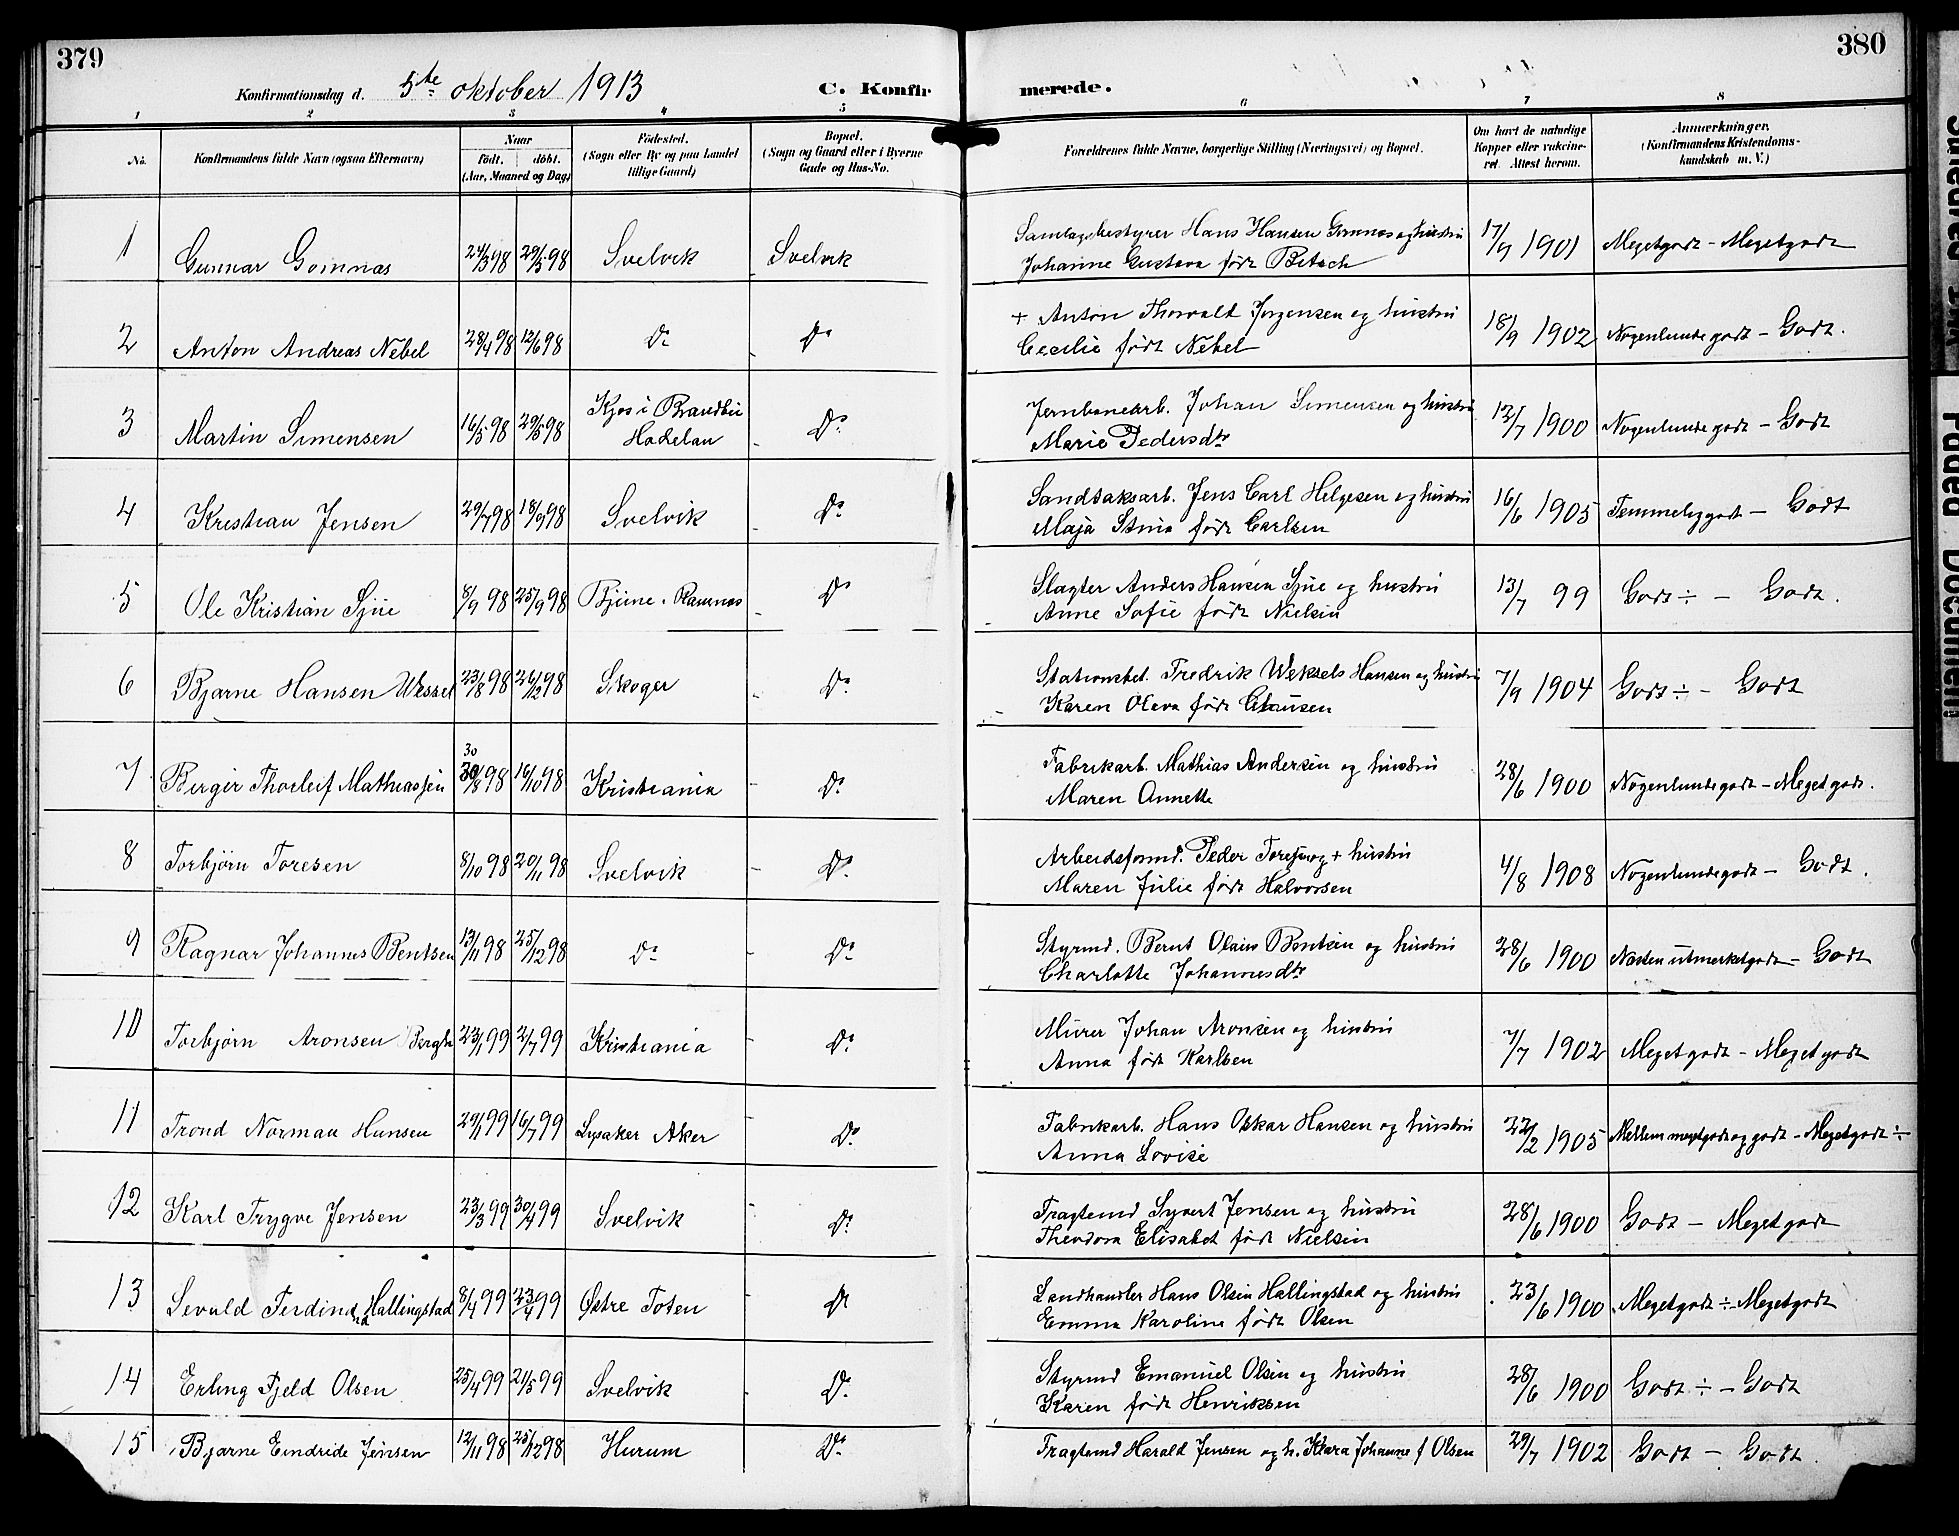 379
380
Konfirmationsdag d. 5te oktober 1913
C. Konfirmerede.
1 2 3 4 5 6 7 8
No.
Konfirmandens fulde Navn (ogsaa Efternavn)
Naar
født. døbt.
(Aar, Maaned og Dag)
Fødested.
(Sogn eller By og paa Landet
tillige Gaard)
Bopæl.
(Sogn og Gaard eller i Byerne
Gade og Hus-No.
Forældrenes fulde Navne, borgerlige Stilling (Næringsvei) og Bopæl.
Om havt de naturlige
Kopper eller vakcine-
ret. Attest herom.
Anmærkninger.
(Konfirmandens Kristendoms-
kundskab m. V.)
1 Gunnar Gomnæs 24/3 98 29/5 98 Svelvik Svelvik
Samlagsbestyrer Hans Hansen Gomnæs og hustru
Johanne Gustava født 17/9 1901 Megetgodt - Megetgodt
2 Anton Andreas Nebel 28/4 98 12/6 98 Do Do
+ Anton Thorvald Jørgensen og hustru
Cecilie født Nebel 18/9 1902 Nogenlunde godt - Godt.
3 Martin Simensen 16/5 98 29/5 98 Kjos i Brandbu
Hadeland Do
Jernbanearb. Johan Simensen og hustru
Marie Pedersdtr 12/7 1900 Nogenlunde godt - Godt
4 Kristian Jensen 29/7 98 18/9 98 Svelvik Do
Sandtaksarb. Jens Carl Helgesen og hustru
Maja Stina født Carlsen 16/6 1905 Temmeliggodt - Godt
5 Ole Kristian Sjue 8/9 98 25/9 98 Ramnæs Do
Slagter Anders Hansen Sjue og hustru
Anne Sofie født Nielsen 13/7 99 Godt ÷ - Godt.
6 Bjarne Hansen Wessel 23/8 98 26/12 98 Skoger Do
Stationsbet. Fredrik Weksels Hansen og hustru
Karen Oleva født Clausen 7/9 1904 Godt ÷ - Godt
7 Birger Thorleif Mathiassen 30/8 98 16/10 98 Kristiania Do
Fabrikarb. Mathias Andersen og hustru
Maren Annette 28/6 1900 Nogenlundegodt - Megetgodt.
8 Torbjørn Toresen 8/10 98 20/11 98 Svelvik Do
Arbeidsformd. Peder Toresen og + hustru
Maren Julie født Halvorsen 4/8 1908 Nogenlundegodt - Godt.
9 Ragnar Johannes Bentsen 13/11 98 25/12 98 Do Do
Styrmd. Bernt Olaus Bentsen og hustru
Charlotte Johannesdtr 28/6 1900 Næsten utmerketgodt - Godt
10 Torbjørn Aronsen 23/1 99 2/7 99 Kristiania Do
Murer Johan Aronsen og hustru
Anna født Karlsen 7/7 1902 Megetgodt - Megetgodt
11 Trond Norman Hansen 29/1 99 16/7 99 Lysaker Aker Do
Fabrikarb. Hans Oskar Hansen og hustru
Anna Lovise 22/2 1905 Mellem megetgodt og godt - Megetgodt ÷
12 Karl Trygve Jensen 23/3 99 30/4 99 Svelvik Do
Fragtemd Syvert Jensen og hustru
Theodora Elisabet født Nielsen 28/6 1900 Godt - Megetgodt
13 Sevald Ferdinand Hallingstad 8/4 99 23/4 99 Østre Toten Do
Landhandler Hans Olsen Hallingstad og hustru
Emma Karoline født Olsen 23/6 1900 Megetgodt ÷ Megetgodt
14 Erling Fjeld Olsen 25/4 99 21/5 99 Svelvik Do
Styrmd Emanuel Olsen og hustru
Karen født Henriksen 28/6 1900 Godt ÷ - Godt
15 Bjarne Eindride Jensen 12/11 98 25/12 98 Hurum Do
Fragtemd Harald Jensen og h. Klara Johanne f Olsen 29/7 1902 Godt - Godt.